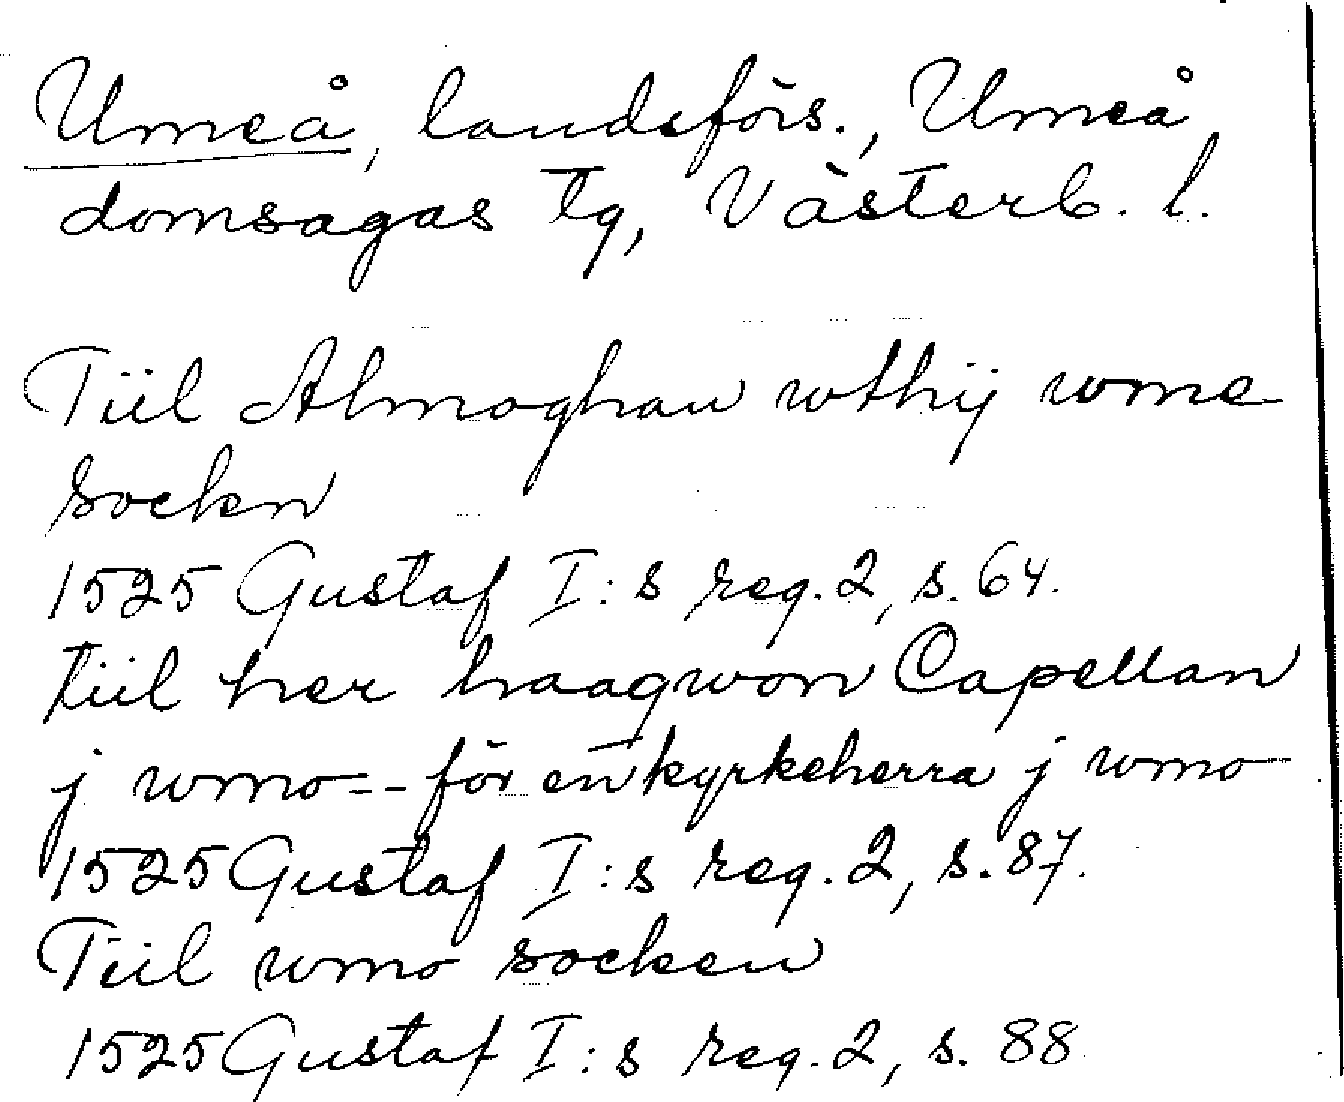 Umeå, landsförs., Umeå
domsagas tg, Västerb. l.
Tiil Almoghan wthij wme
sockn
1525 Gustaf I:s reg. 2, s. 64.
tiil her haagwon Capellan
j wmo -- för en kyrkeherra j wmo
1525 Gustaf I:s reg. 2, s. 87.
Tiil wmo socken
1525 Gustaf I:s reg. 2, s. 88